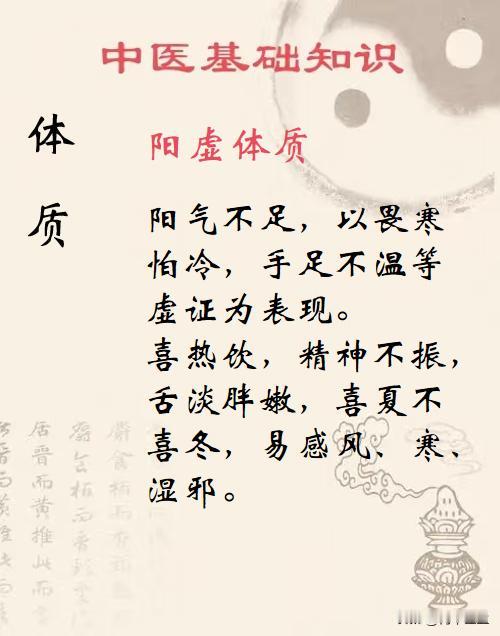 中医基础知识
体
质
阳虚体质
阳气不足，以畏寒
怕冷，手足不温等
虚证为表现。
喜热饮，精神不振，
舌淡胖嫩，喜夏不
喜冬，易感风、寒、
湿邪。